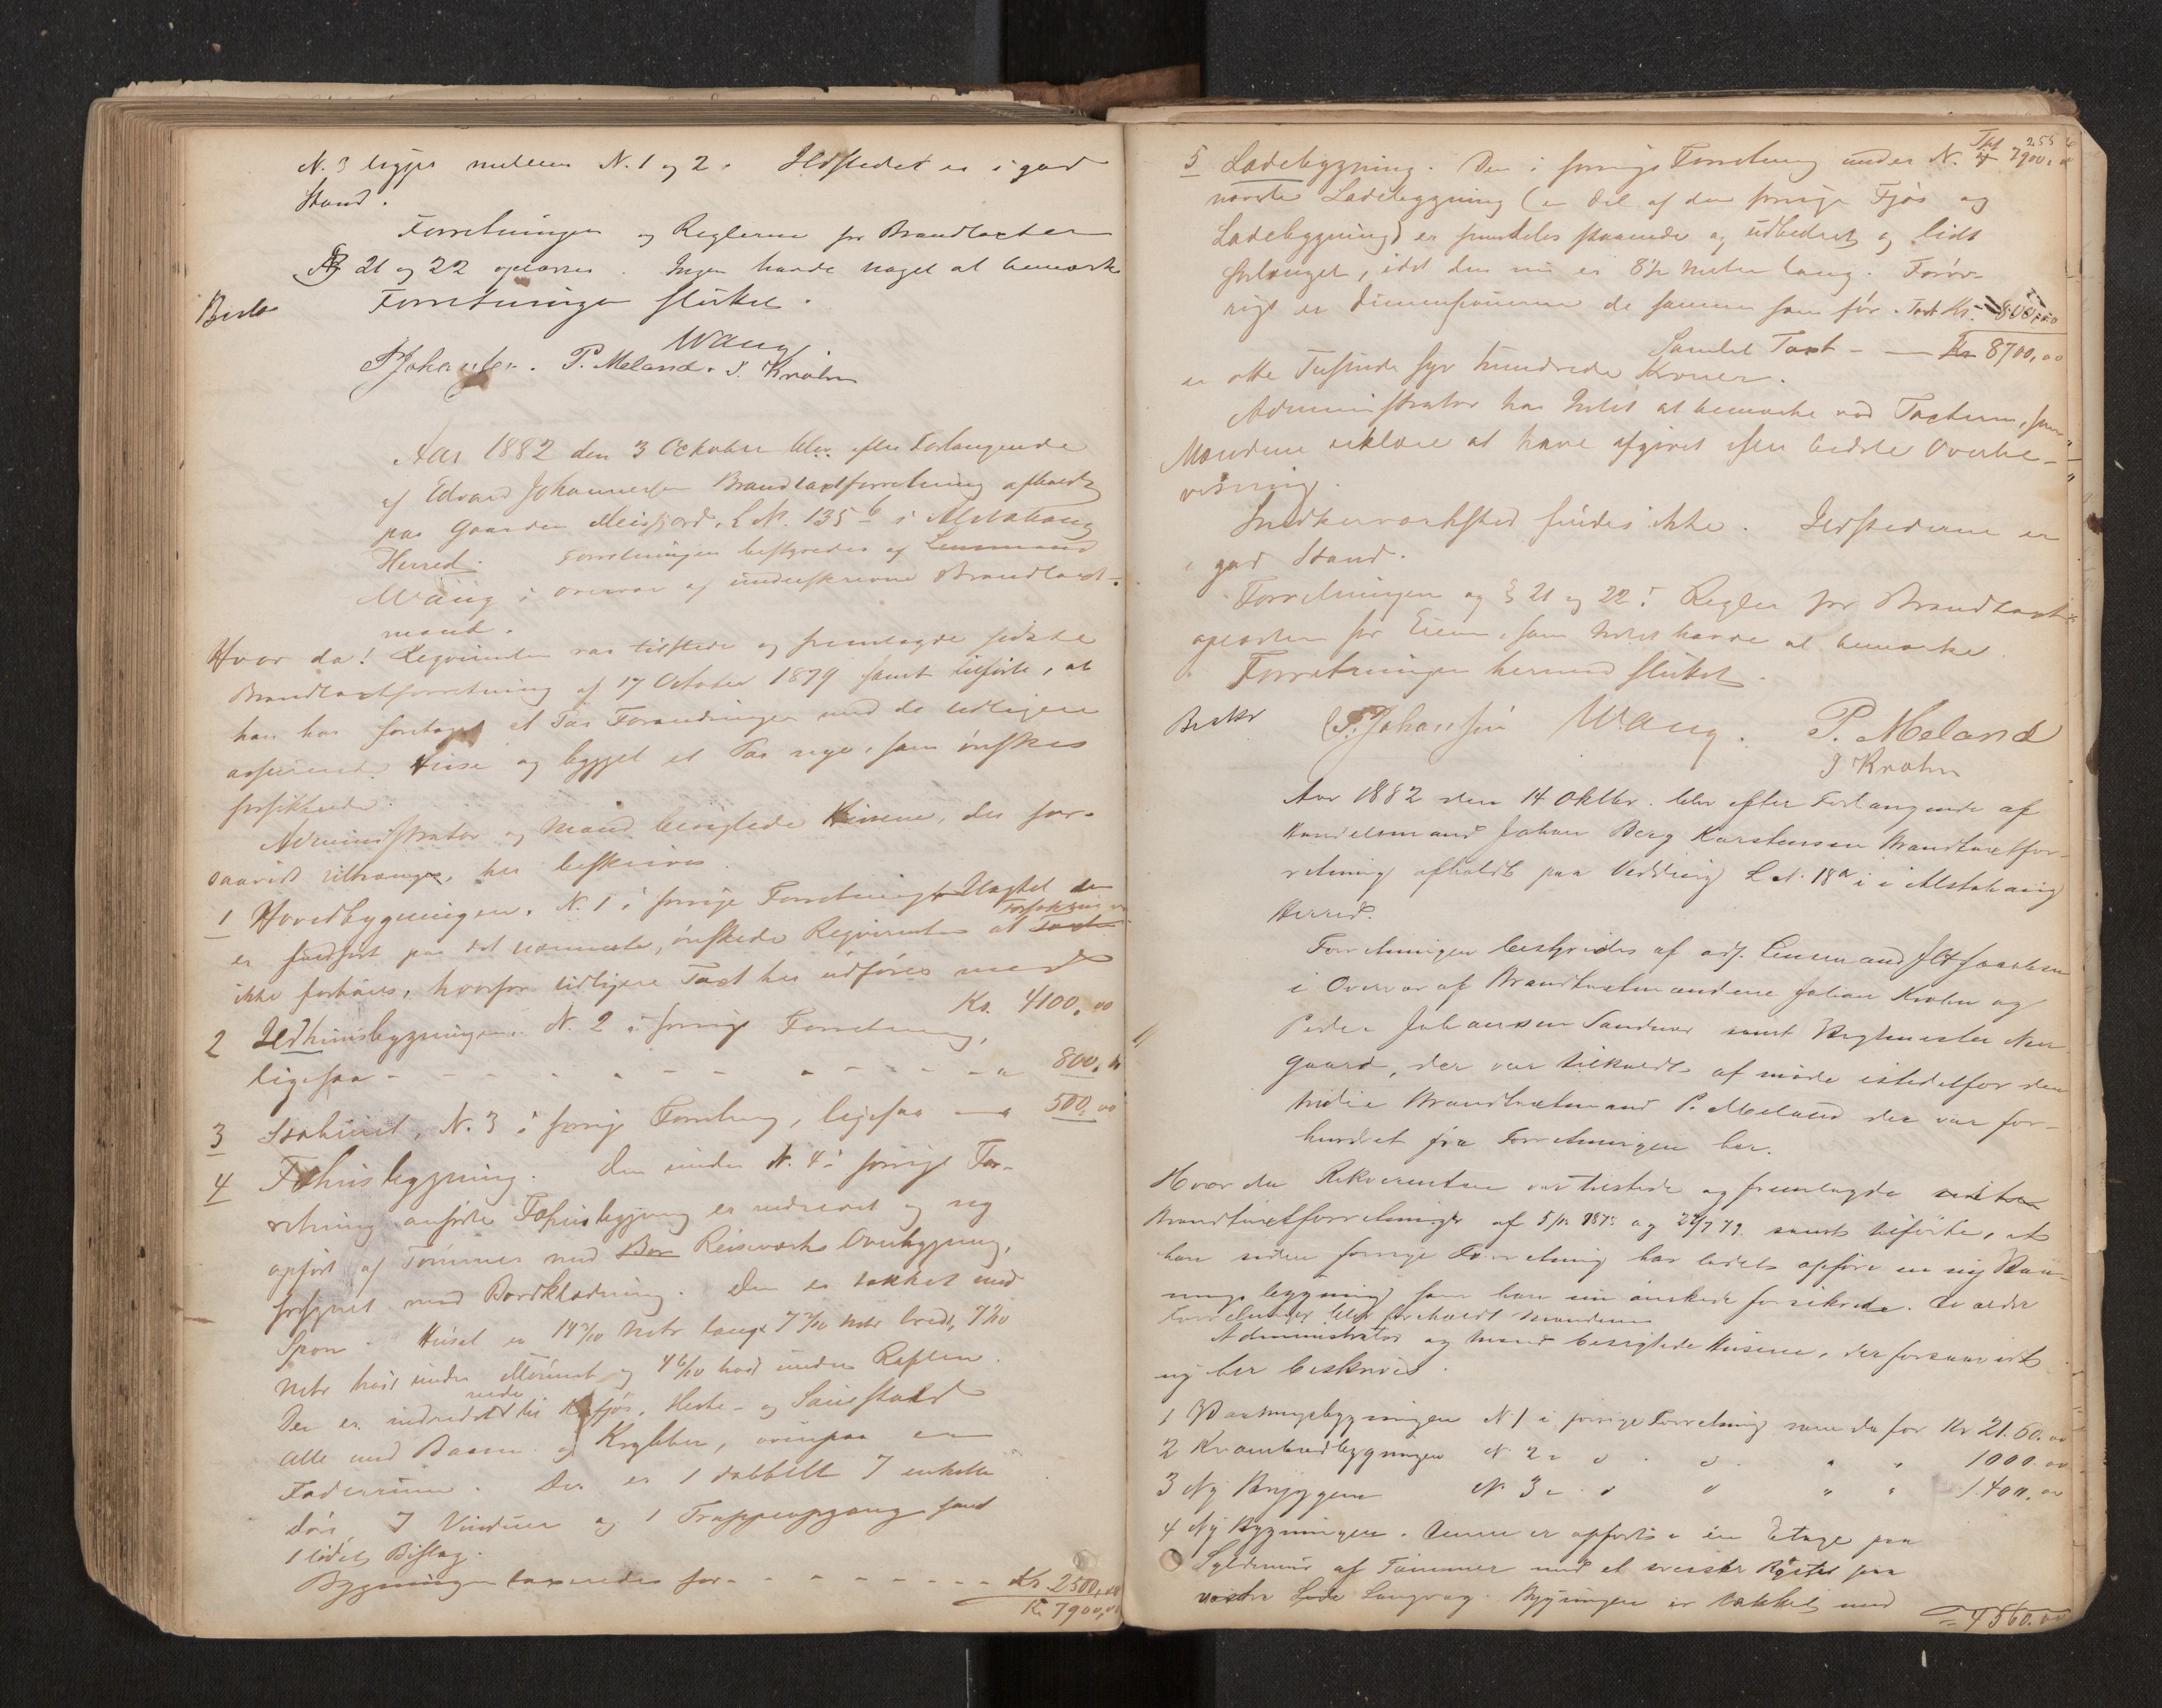 N. 3 ligger mellem N. 1 og 2. Ildstedet er i god
Stand.
Forretningen og Reglerne for Brandtaxter
§ 21 og 22 oplæstes. Ingen havde noget at bemærke
Forretningen sluttet.
Wang
PJohansen. P. Meland. J. Krohn
Aar 1882 den 3 October blev efter Forlangende
af Edvard Johannesen Brandtaxtforretning afholdt
paa Gaarden Meisfjord, L.N. 135 b i Alstahaug
Herred. Forretningen bestyredes af Lensmand
Wang i Overvær af underskrevne Brandtaxt-
mænd.
Hvor da! Reqvirenten var tilstede og fremlagde sidste
Brandtaxtforretning af 17 October 1879 samt tilførte, at
han har foretaget et Par Forandringer med de tidligere
assurerede Huse og bygget et Par nye, som ønskes
forsikrede.
Administrator og Mænd besigtede Husene, der for-
saavidt tiltrænges, her beskrives.
1 Hovedbygningen. N. 1 i forrige Forretning. Uagtet den
er fuldført paa det nærmeste, ønskede Reqvirenten at Taxten
ikke forhøies, hvorfor tidligere Taxt her udføres med
Kr. 4100,00
2 Ildhusbygningen. N. 2 i forrige Forretning,
ligesaa - - - - - - - - - - 800,00
3 Staburet, N. 3 i forrige Forretning, ligesaa - 500,00
4 Fæhusbygning. Den under N. 4 i forrige For-
retning anførte Fæhusbygning er nedrevet og ny
opført af Tømmer med Reisværks Overbygning,
forsynet med Bordklædning. Den er tækket med
Spon. Huset er 14 2/10 Meter langt 7 2/10 Metr bredt,
Metr høit under Mønnet og 4 6/10 høit under Raften.
Der er indredet nede til Kofjøs, Heste- og Sauestald
alle med Baase og Krybber, ovenpaa er
Foderrum. Der er 1 dobbelt 7 enkelte
Døre, 7 Vinduer og 1 Trappeopgang samt
1 lidet Bislag.
Bygningen taxeredes for - - - - - - - Kr. 2500,00
Kr. 7900,00
255
7900,00
5 Ladebygning. Den i forrige Forretning under N. 4
nævnte Ladebygning (en Del af den forrige Fjøs og
Ladebygning) er fremdeles staaende og udbedret og lidt
forlænget, idet den nu er 8 1/2 Meter lang. Forøv-
rigt er Dimensionerne de samme som før. Taxt Kr. 800,00
Samlet Taxt - - Kr 8700,00
er otte Tusinde syv Hundrede Kroner.
Administrator har Intet at bemærke ved Taxterne, som
Mændene erklære at have afgivet efter bedste Overbe-
visning.
Snedkerværksted findes ikke. Ildstederne er
i god Stand.
Forretningen og § 21 og 22 i Regler for Brandtaxt
oplæstes for Eieren, som Intet havde at bemærke.
Forretningen hermed sluttet.
P. Johansen Wang. P. Meland
J Krohn
Aar 1882 den 14 Oktbr. blev efter Forlangende af
Handelsmand Johan Berg Karstensen Brandtaxtfor-
retning afholdt paa Vedding L.N. 18a i Alstahaug
Herred.
Forretningen bestyredes af adj. Lensmand
i Overvær af Brandtaxtmændene Johan Krohn og
Peder Johansen Sandnes samt Bygmester
gaard, der var tilkaldt af møde istedetfor den
tredie Brandtaxtmand P. Meland der var for-
hindret fra Forretningen her.
Hvor da Rekvirenten var tilstede og fremlagde
Brandtaxtforretninger af samt tilførte, at
han siden forrige Forretning har ladet opføre en ny Vaa-
nings bygning som han nu ønskede forsikrede. De ældre
Forretninger blev foreholdt Mændene
Administrator og Mænd besigtede Husene, der forsaavidt
ny her beskrives.
1 Vaaningsbygningen N 1 i forrige Forretning som da for Kr 2160.00
2 Krambodbygningen N. 2 " " " " 1000.00
3 Ny Bryggen N. 3 " " " " 1400.00
4 Ny Bygningen. Denne er opført i en Etage paa
Syldemur af Tømmer med et Røstet paa
vestre Side Langvæg. Bygningen er tækket med
4560.00